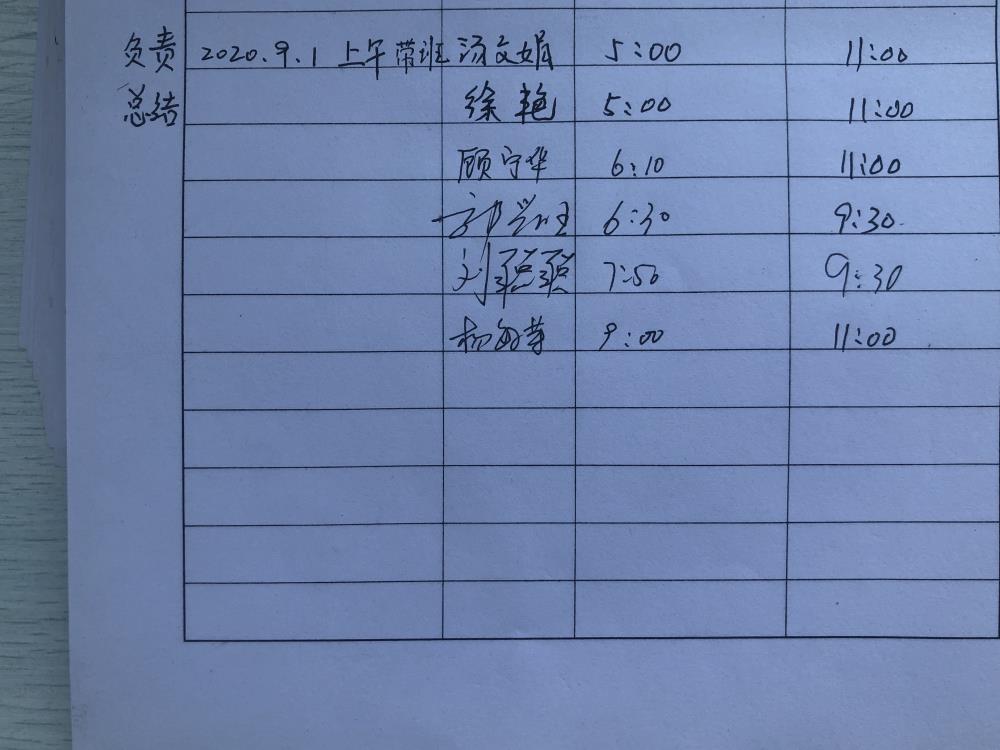 负责 2020.9.1 上午带班 汤文娟 5:00 11:00
总结 徐艳 5:00 11:00
顾守华 6:10 11:00
郭兴旺 6:30 9:30
刘聪聪 7:50 9:30
杨 9:00 11:00